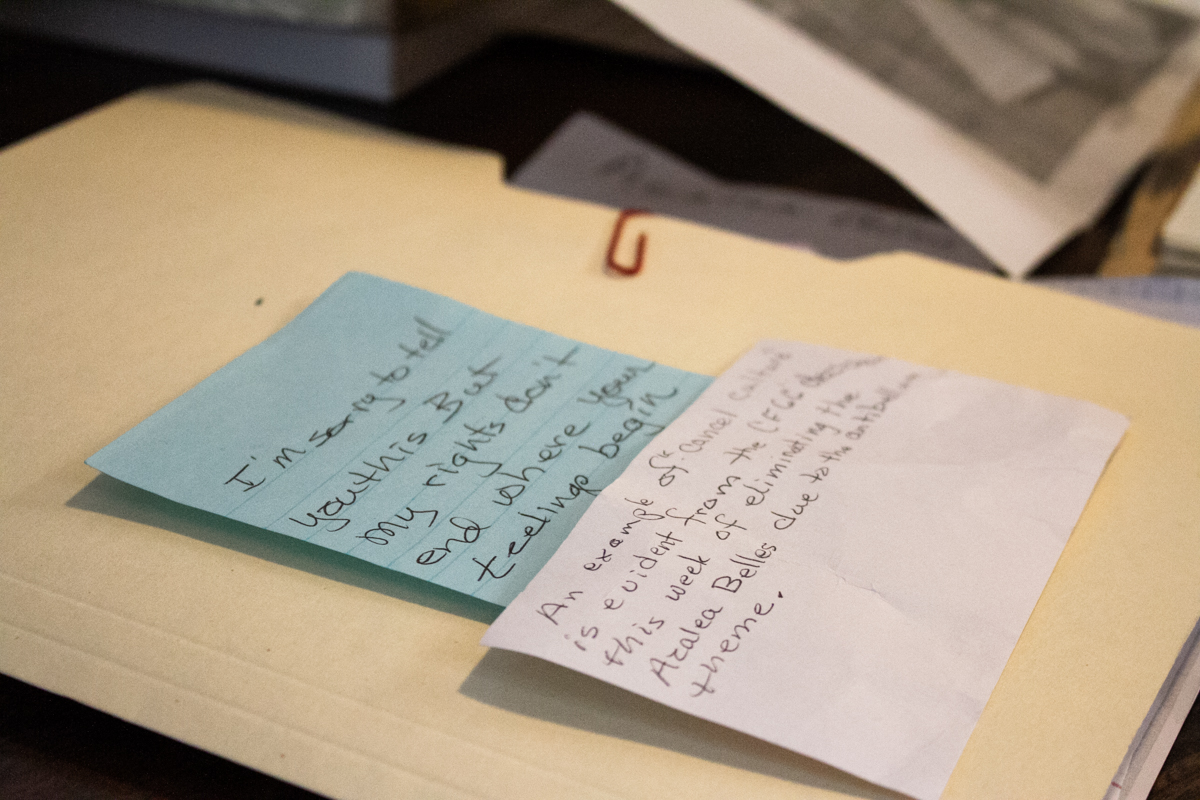 I'm sorry to tell
you this But
my rights don't
end where your
feelings begin
An example of cancel culture
is evident from the CFGC
this week of eliminating the
Azalea Belles due to the antibellum
theme.